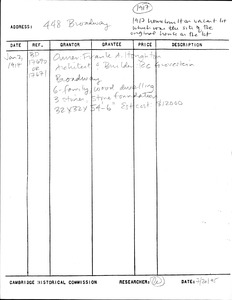 1917
ADDRESS: 448 Broadway
1917 house built on vacant lot
which was the site of the
original house on the lot
DATE REF. GRANTOR GRANTEE PRICE DESCRIPTION
Jan 2, BP Owner: Frank A.
1917 Architect & Builder
or Broadway
6-family, wood dwelling
3 stories, stone foundation
32x32x34-6" Est cost $12000
CAMBRIDGE HISTORICAL COMMISSION RESEARCHER: DATE: